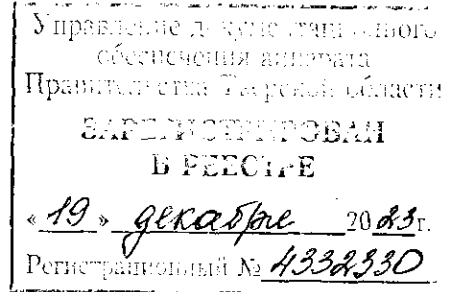 Управление документационного
обеспечения аппарата
Правительства Тверской области
ЗАРЕГИСТРИРОВАН
В РЕЕСТРЕ
«19» декабре 2023г.
Регистрационный № 4332330